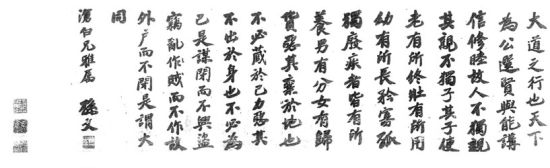 大道之行也天下
為公選賢與能講
信修睦故人不獨親
其親不獨子其子使
老有所終壯有所用
幼有所長矜寡孤
獨廢疾者皆有所
養男有分女有歸
貨惡其棄於地也
不必藏於己力惡其
不出於身也不必為
己是謀閉而不興盜
竊亂作賊而不作故
外户而不閉是謂大
同
滄白兄雅屬 孫文